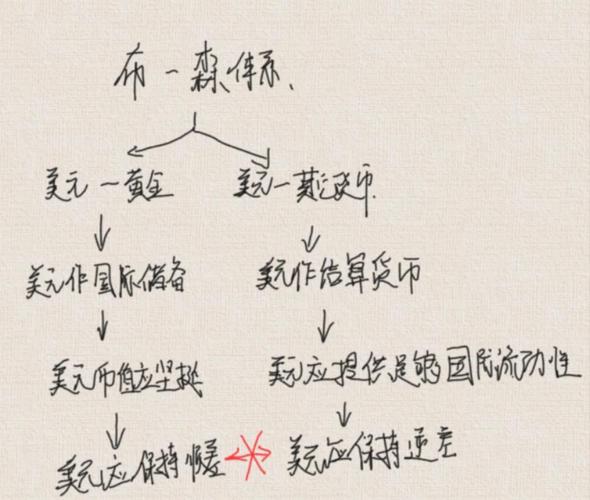 布－森体系、
美元－黄金
美元－其它货币
美元作国际储备
美元作结算货币
美元币值应坚挺
美元应提供足够国际流动性
美元应保持顺差
美元应保持逆差